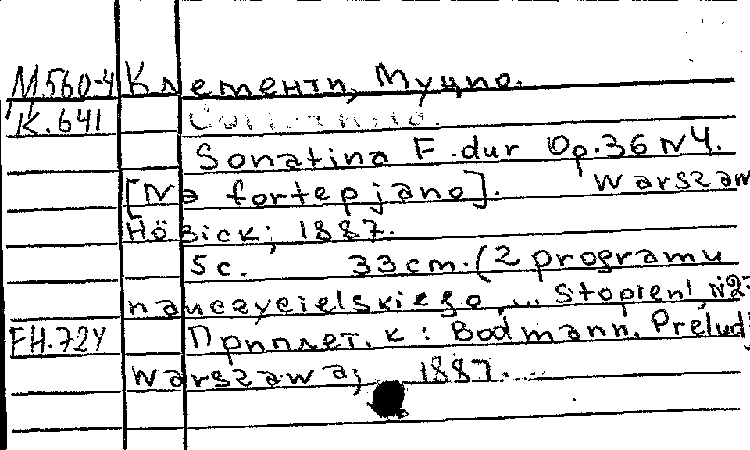 М560-4 Клементи, Муцио.
К.641
Sonatina F-dur Op.36 N4.
[Na fortepjano]. Warszaw
Hösick, 1887.
5 с. 33 cm. (Z programu
nauczycielskiego ... Stopień, №2
FH.724 Приплет. к: Bodmann. Prelud
Warszawa, 1887.